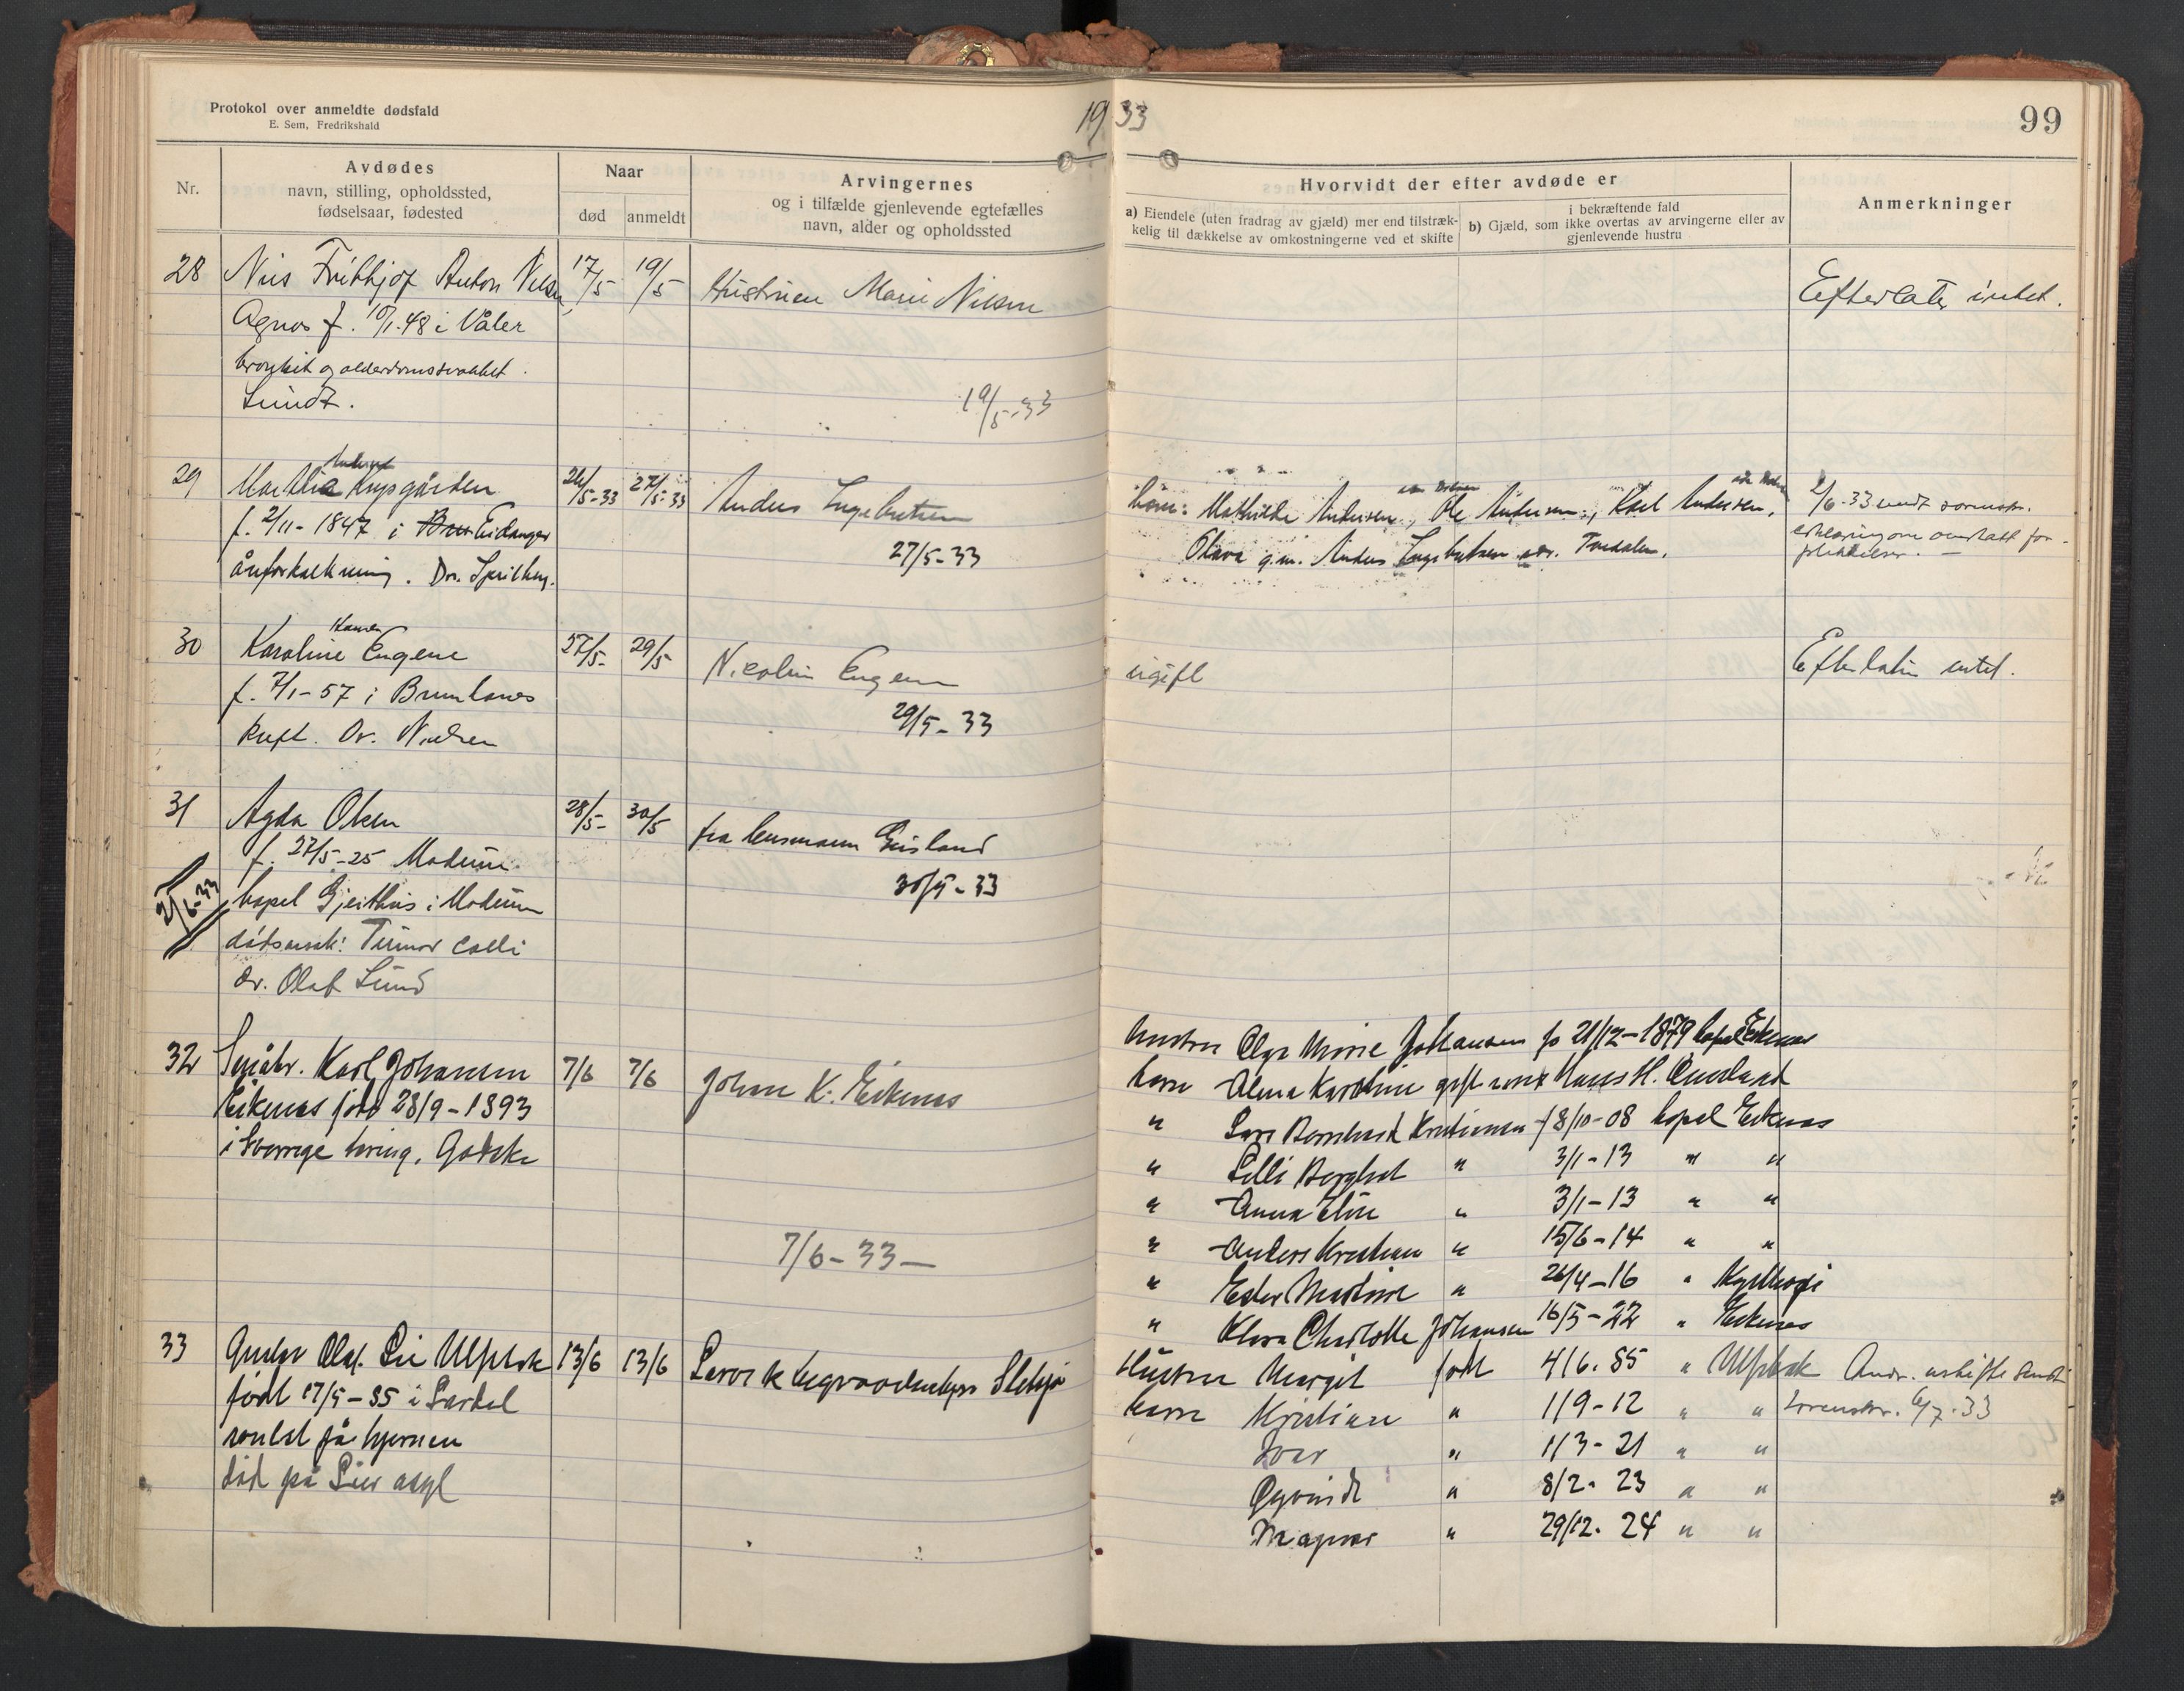 Protokol over anmeldte dødsfald
E. Sem, Fredrikshald
1933
99
Nr.
Avdødes
navn, stilling, opholdssted,
fødselsaar, fødested
Naar
død
anmeldt
Arvingernes
og i tilfælde gjenlevende egtefælles
navn, alder og opholdssted
Hvorvidt der efter avdøde er
a) Eiendele (uten fradrag av gjæld) mer end tilstræk-
kelig til dækkelse av omkostningerne ved et skifte
i bekræftende fald
b) Gjæld, som ikke overtas av arvingerne eller av
gjenlevende hustru
Anmerkninger
28 Nils Frithjof Anton Nilsen 17/5 19/5 Hustruen Marie Nilsen Efterlater intet.
Agnes f. 10/1.48 i Våler
bronkit og alderdomssvakhet.
Lund.
19/5-33
29 Marthia Krysgården 26/5-33 27/5-33 Anders Ingebretsen
barn: Mathilde Andersen, Ole Andersen, Karl Andersen. 2/6-33 sendt sorenskr.
f. 2/11-1847 i Eidanger
27/5-33
Olava g.m. Anders Ingebretsen adr. Tordalen.
erklæring om overtatt for-
pliktelser.
åreforkalkning. Dr.
Hansen
30 Karoline Eugene 27/5- 29/5 Nicolin Eugene ugift Efterlater intet.
f. 7/1-57 i Brunlanes
29/5-33
Kreft. Dr. Nielsen
31 Agda Olsen 28/5- 30/5 fra lensmann Geisland
f. 27/5-25 Modum
30/5-33
21/6-33
bopel Gjeithus i Modum
dødsårsak: Tumor
dr. Olaf Lund
32 Småbr. Karl Johansen 7/6 7/6 Johan K. Eikenes
Eikenes født 28/9-1893
i Sverrige tæring. Godske
7/6-33-
hustru Olga Marie Johansen f. 21/12-1879 bopel Eikenes
barn Alma Karoline gift med Hans H. Overland
" Lars Bernhard Kristiansen f 8/10-08 bopel Eikenes
" Lilli Borghil " 3/1-13 " "
" Anna Elise " 3/1-13 " "
" Anders Kristian " 15/6-14 " "
" Ester Martine " 26/4-16 "
" Klara Charlotte Johansen 16/5-22 " Eikenes
33 Gustav Olaf. Lie Ulfsbak 13/6 13/6
født 17/5-85 i
svulst på hjernen
død på Lier asyl
Hustru Margit født 4/6.85 " Ulfsbak Andr. uskifte sendt
barn Kristian " 1/9-12 " " sorenskr. 6/7.33
Ivar " 1/3-21 " "
Øyvind " 8/2-23 " "
Magnar " 29/12-24 " "